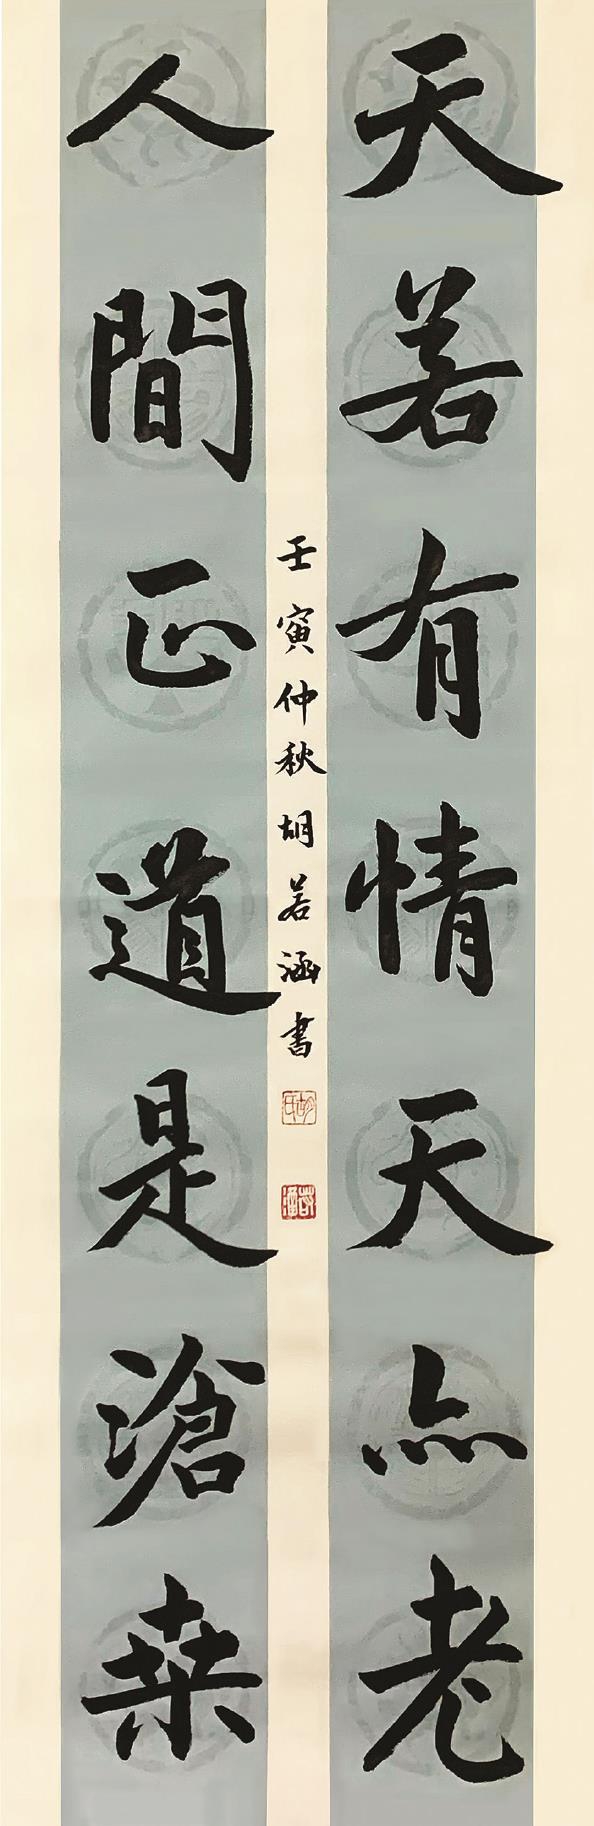 天若有情天亦老
人間正道是滄桑
壬寅仲秋胡若涵書
胡氏
若涵